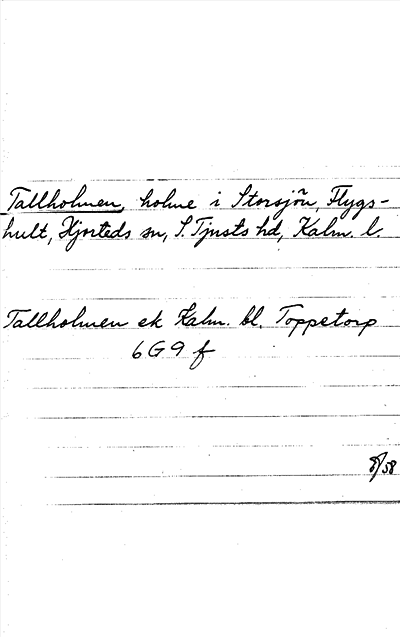 Tallholmen, holme i Storsjön, Flygs-
hult, Hjorteds sn, S. Tjusts hd, Kalm. l.
Tallholmen ek Kalm. bl. Toppetorp
6G9f